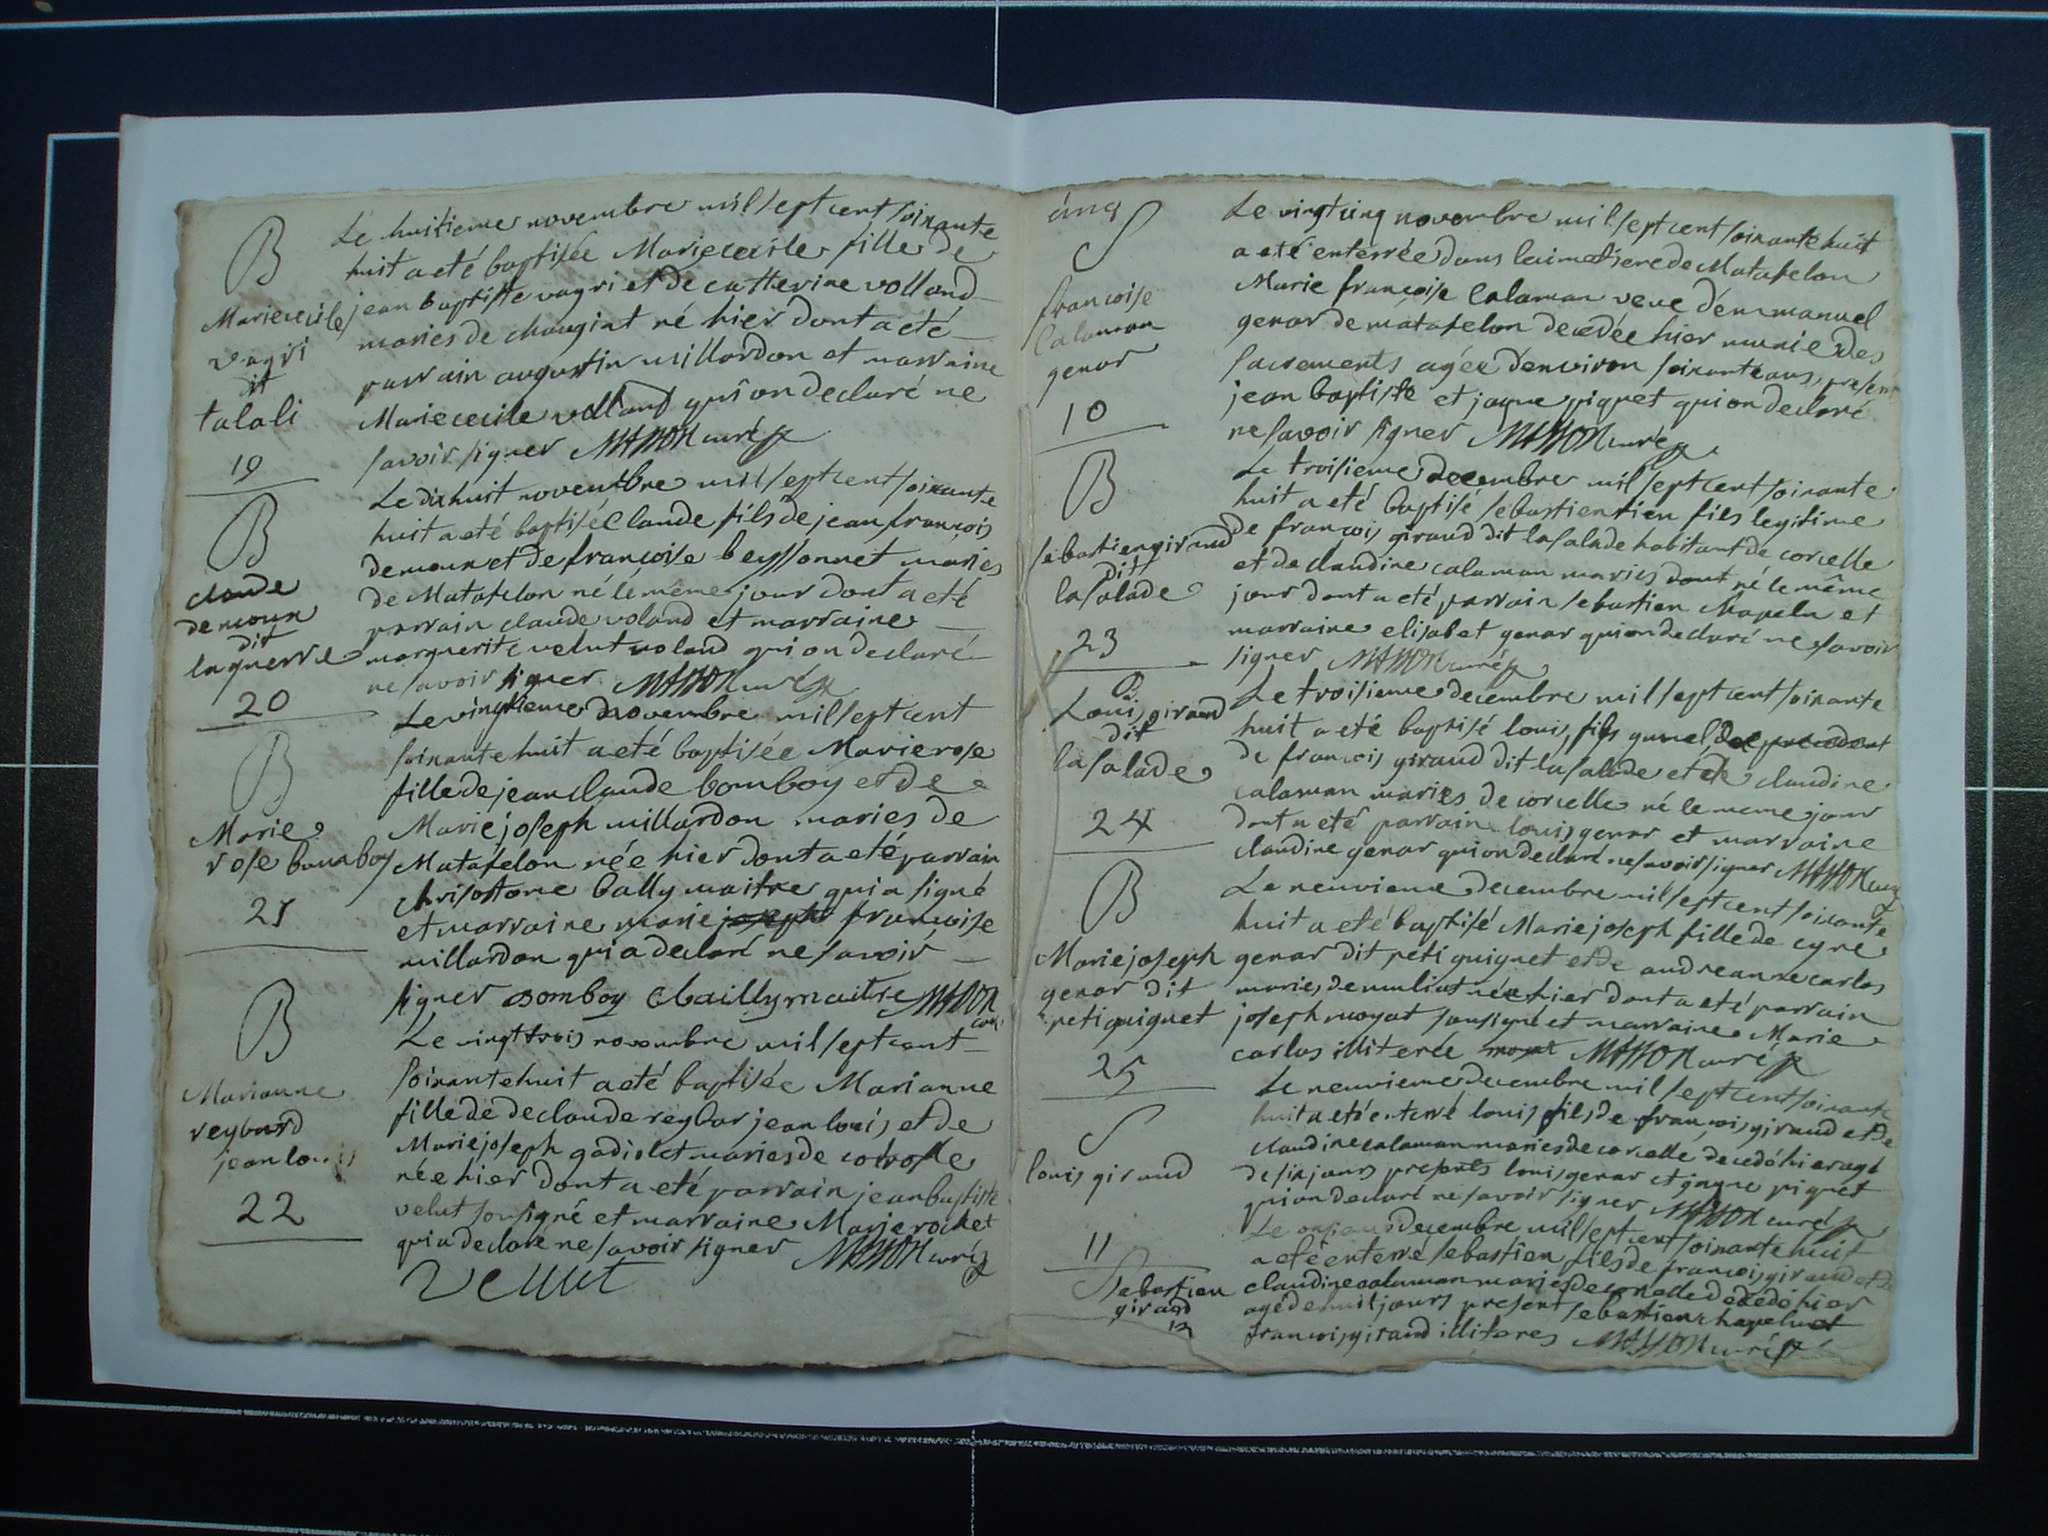 B
Mariececile
vagri
dit
talali
19
Le huitieme novembre mil sept cent soixante
huit a eté baptisée Mariececile fille de
jean baptiste vagri et de catterine volland
mariés de chougiat né hier dont a eté
parrain augustin millardon et marraine
Mariececile volland qui on declaré ne
savoir signer MASSON curé
B
claude
demoux
dit
laguerre
20
Le dix huit novembre mil sept cent soixante
huit a eté baptisé Claude fils de jean françois
demoux et de françoise beyssonnet mariés
de Matafelon né le même jour dont a eté
parrain claude voland et marraine
marguerite velut voland qui on declaré
ne savoir signer MASSON curé
B
Marie
rose bomboy
21
Le vingtieme novembre mil sept cent
soixante huit a eté baptisée Marie rose
fille de jean claude bomboy et de
Marie joseph millardon mariés de
Matafelon née hier dont a eté parrain
chrisostome bally maitre qui a signé
et marraine marie joseph françoise
millardon qui a declaré ne savoir
signer bomboy C bailly maitre MASSON
curé
B
Marianne
reybard
jean louis
22
Le vingt trois novembre mil sept cent
soixante huit a eté baptisée Marianne
fille de de claude reybar jean louis et de
Marie joseph gadiolet mariés de
née hier dont a eté parrain jean baptiste
velut sousigné et marraine Marie rochet
qui a declaré ne savoir signer MASSON curé
velut
cinq
S
françoise
Calaman
genor
10
Le vingt cinq novembre mil sept cent soixante huit
a eté enterrée dans le cimetiere de Matafelon
Marie françoise Calaman veve d'emmanuel
genor de matafelon decedée hier munie des
sacrements agée d'environ soixante ans, present
jean baptiste et jayne piquet qui on declaré
ne savoir signer MASSON curé
B
sebastien giraud
dit
la salade
23
Le troisieme decembre mil sept cent soixante
huit a eté baptisé sebastien fils legitime
de françois giraud dit la salade habitant de corcelle
et de claudine calaman mariés dont né le même
jour dont a eté parrain sebastien chapelu et
marraine elisabet genor qui on declaré ne savoir
signer MASSON curé
B
Louis giraud
dit
la salade
24
Le troisieme decembre mil sept cent soixante
huit a eté baptisé louis fils gumel de precedent
de françois giraud dit la salade et de claudine
calaman mariés de corcelle né le meme jour
dont a eté parrain louis genor et marraine
claudine genor qui on declaré ne savoir signer MASSON curé
B
Marie joseph
genor dit
peti quignet
25
Le neuvieme decembre mil sept cent soixante
huit a eté baptisé Marie joseph fille de
genor dit peti quignet et de andreanne carlos
mariés de muliat née hier dont a eté parrain
joseph moyat sousigné et marraine Marie
carlos illiterée moyat MASSON curé
S
louis giraud
11
Le neuvieme decembre mil sept cent soixante
huit a eté enterré louis fils de françois giraud et de
claudine calaman mariés de corcelle decedé hier agé
de six jours presents louis genor et jayne piquet
qui on declaré ne savoir signer MASSON curé
Sebastien
giraud
12
Le decembre mil sept cent soixante huit
a eté enterré sebastien fils de françois giraud et de
claudine calaman mariés de corcelle decedé hier
agé de huit jours present sebastien chapelu et
françois giraud illiteres MASSON curé